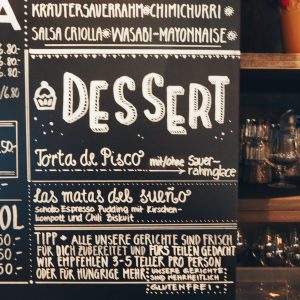 A
KRÄUTERSAUERRAHM CHIMICHURRI
SALSA CRIOLLA WASABI-MAYONNAISE
6.80.-
.80.-
/6.80
DESSERT
50.-
Torta de Pisco mit/ohne Sauer-
rahmglace
Las matas del sueño
Espresso Pudding mit Kirschen-
kompott und Chili Biskuit
OL
50.-
50.-
50.-
TIPP ALLE UNSERE GERICHTE SIND FRISCH
FÜR DICH ZUBEREITET UND FÜRS TEILEN GEDACHT
WIR EMPFEHLEN 3-5 TELLER PRO PERSON
ODER FÜR HUNGRIGE MEHR. UNSERE GERICHTE
SIND MEHRHEITLICH
GLUTENFREI